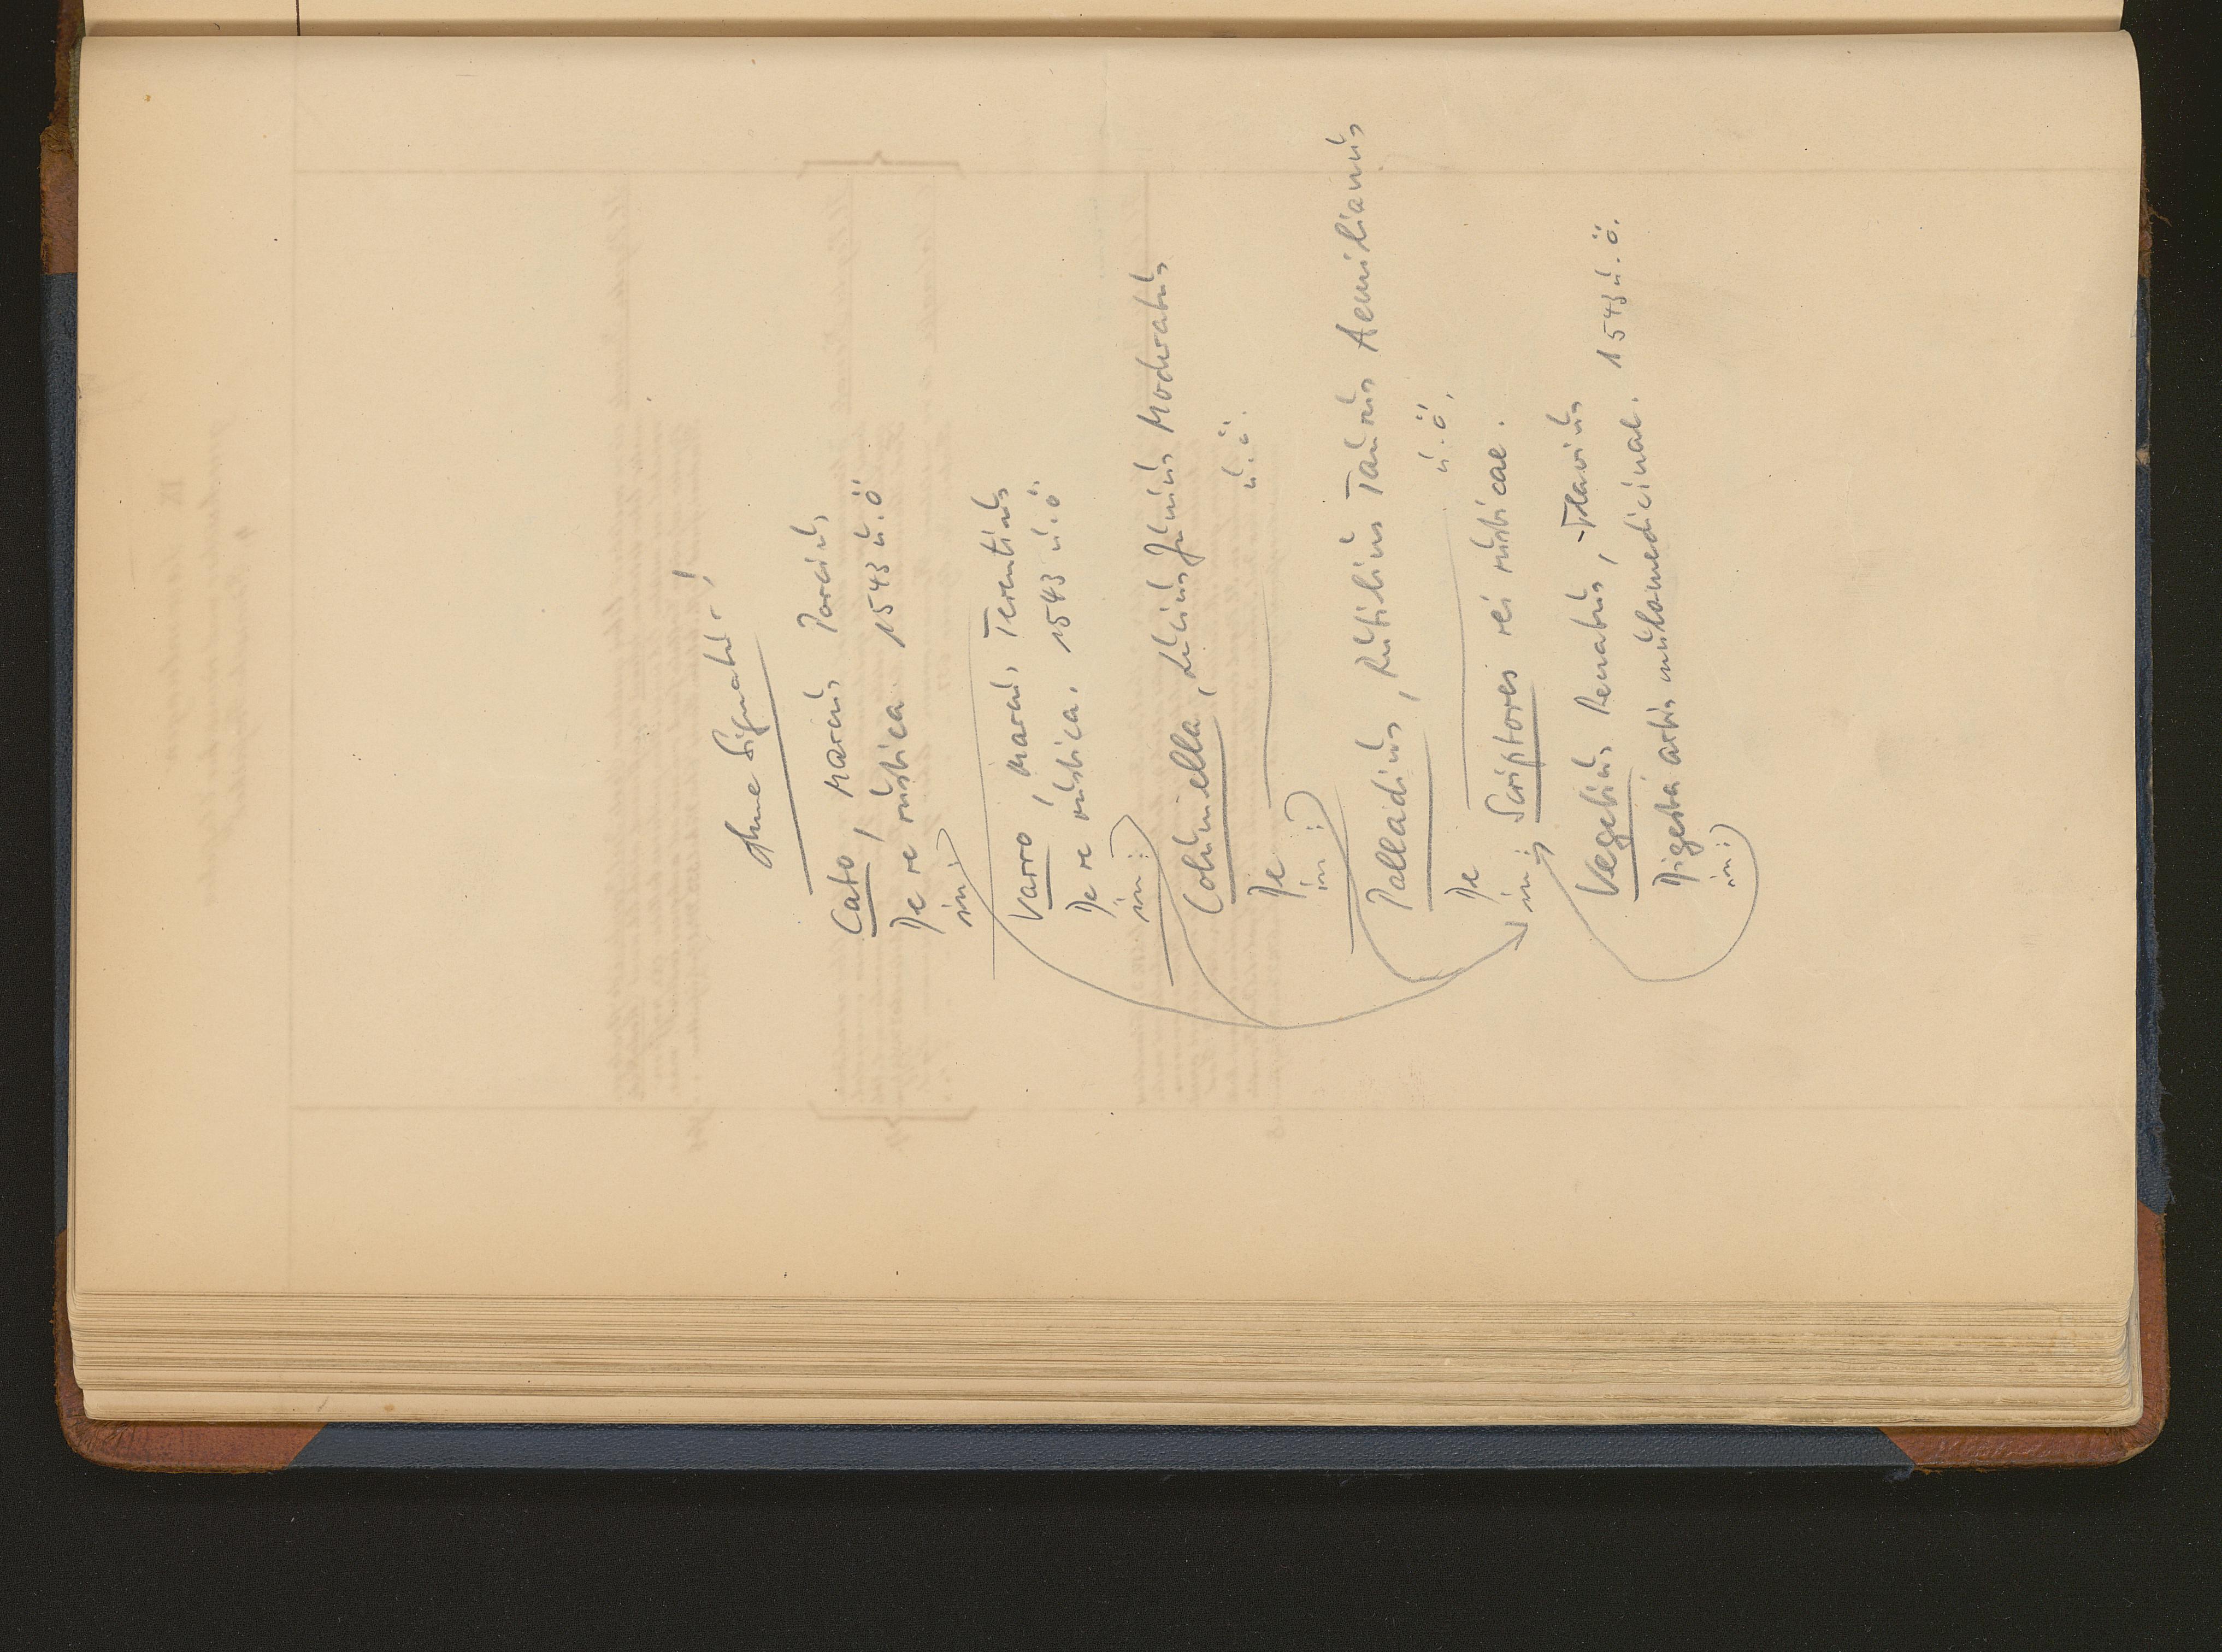 ohne Signatur!
Cato, Marcus Porcius
De re rustica 1543 u. ö
in:
Varro, Marcus Terentius
De re rustica. 1543 u. ö
in:
Columella, Lucius Junius Moderatus
De u. ö.
in:
Palladius, Rutilius Taurus Aemilianus
De u. ö.
in: Scriptores rei rusticae.
Vegetius Renatus, Flavius
Digesta artis mulomedicinae. 1543 u. ö.
in: